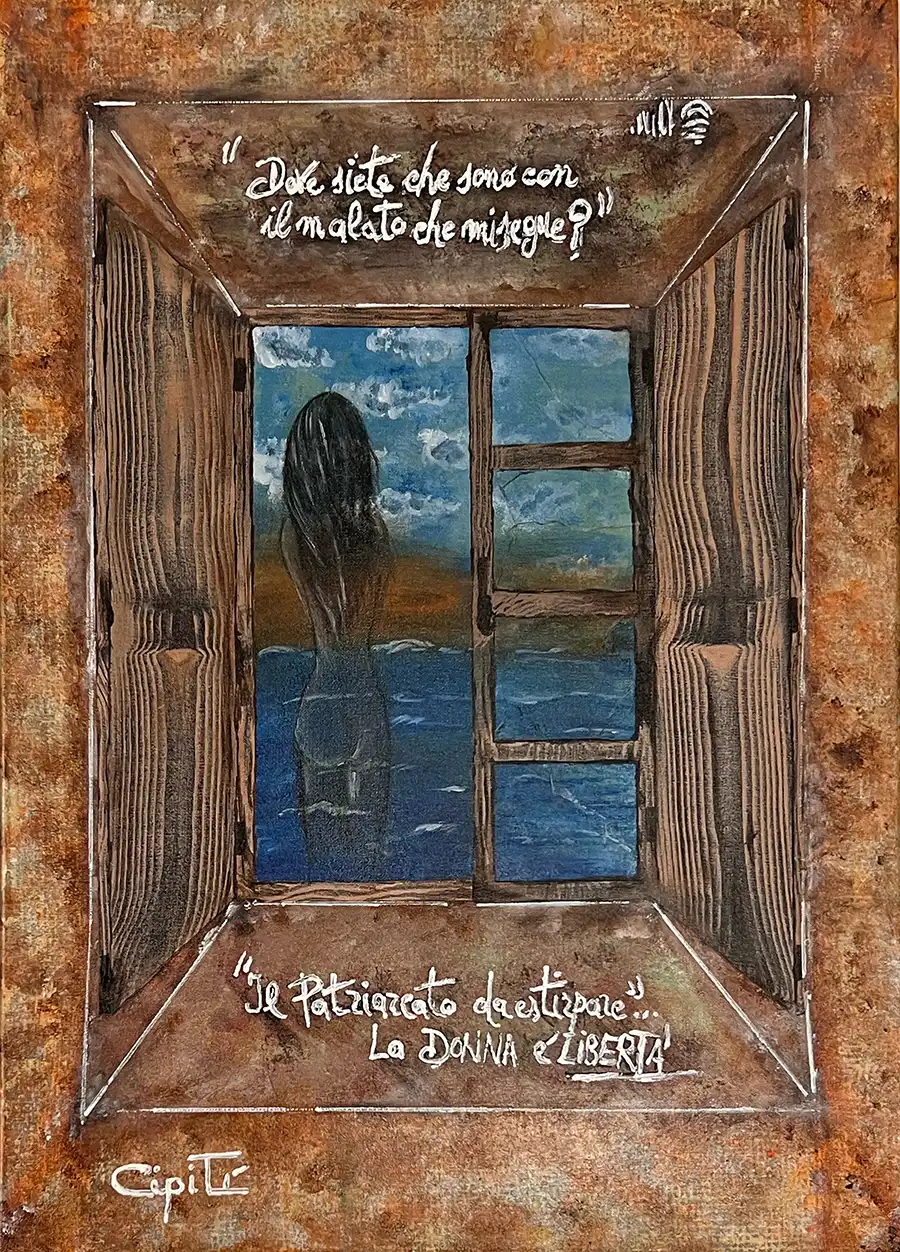 "Dove siete che sono con
il malato che mi segue?"
"Il Patriarcato da estirpare"...
La DONNA é LIBERTA'
CipiTi